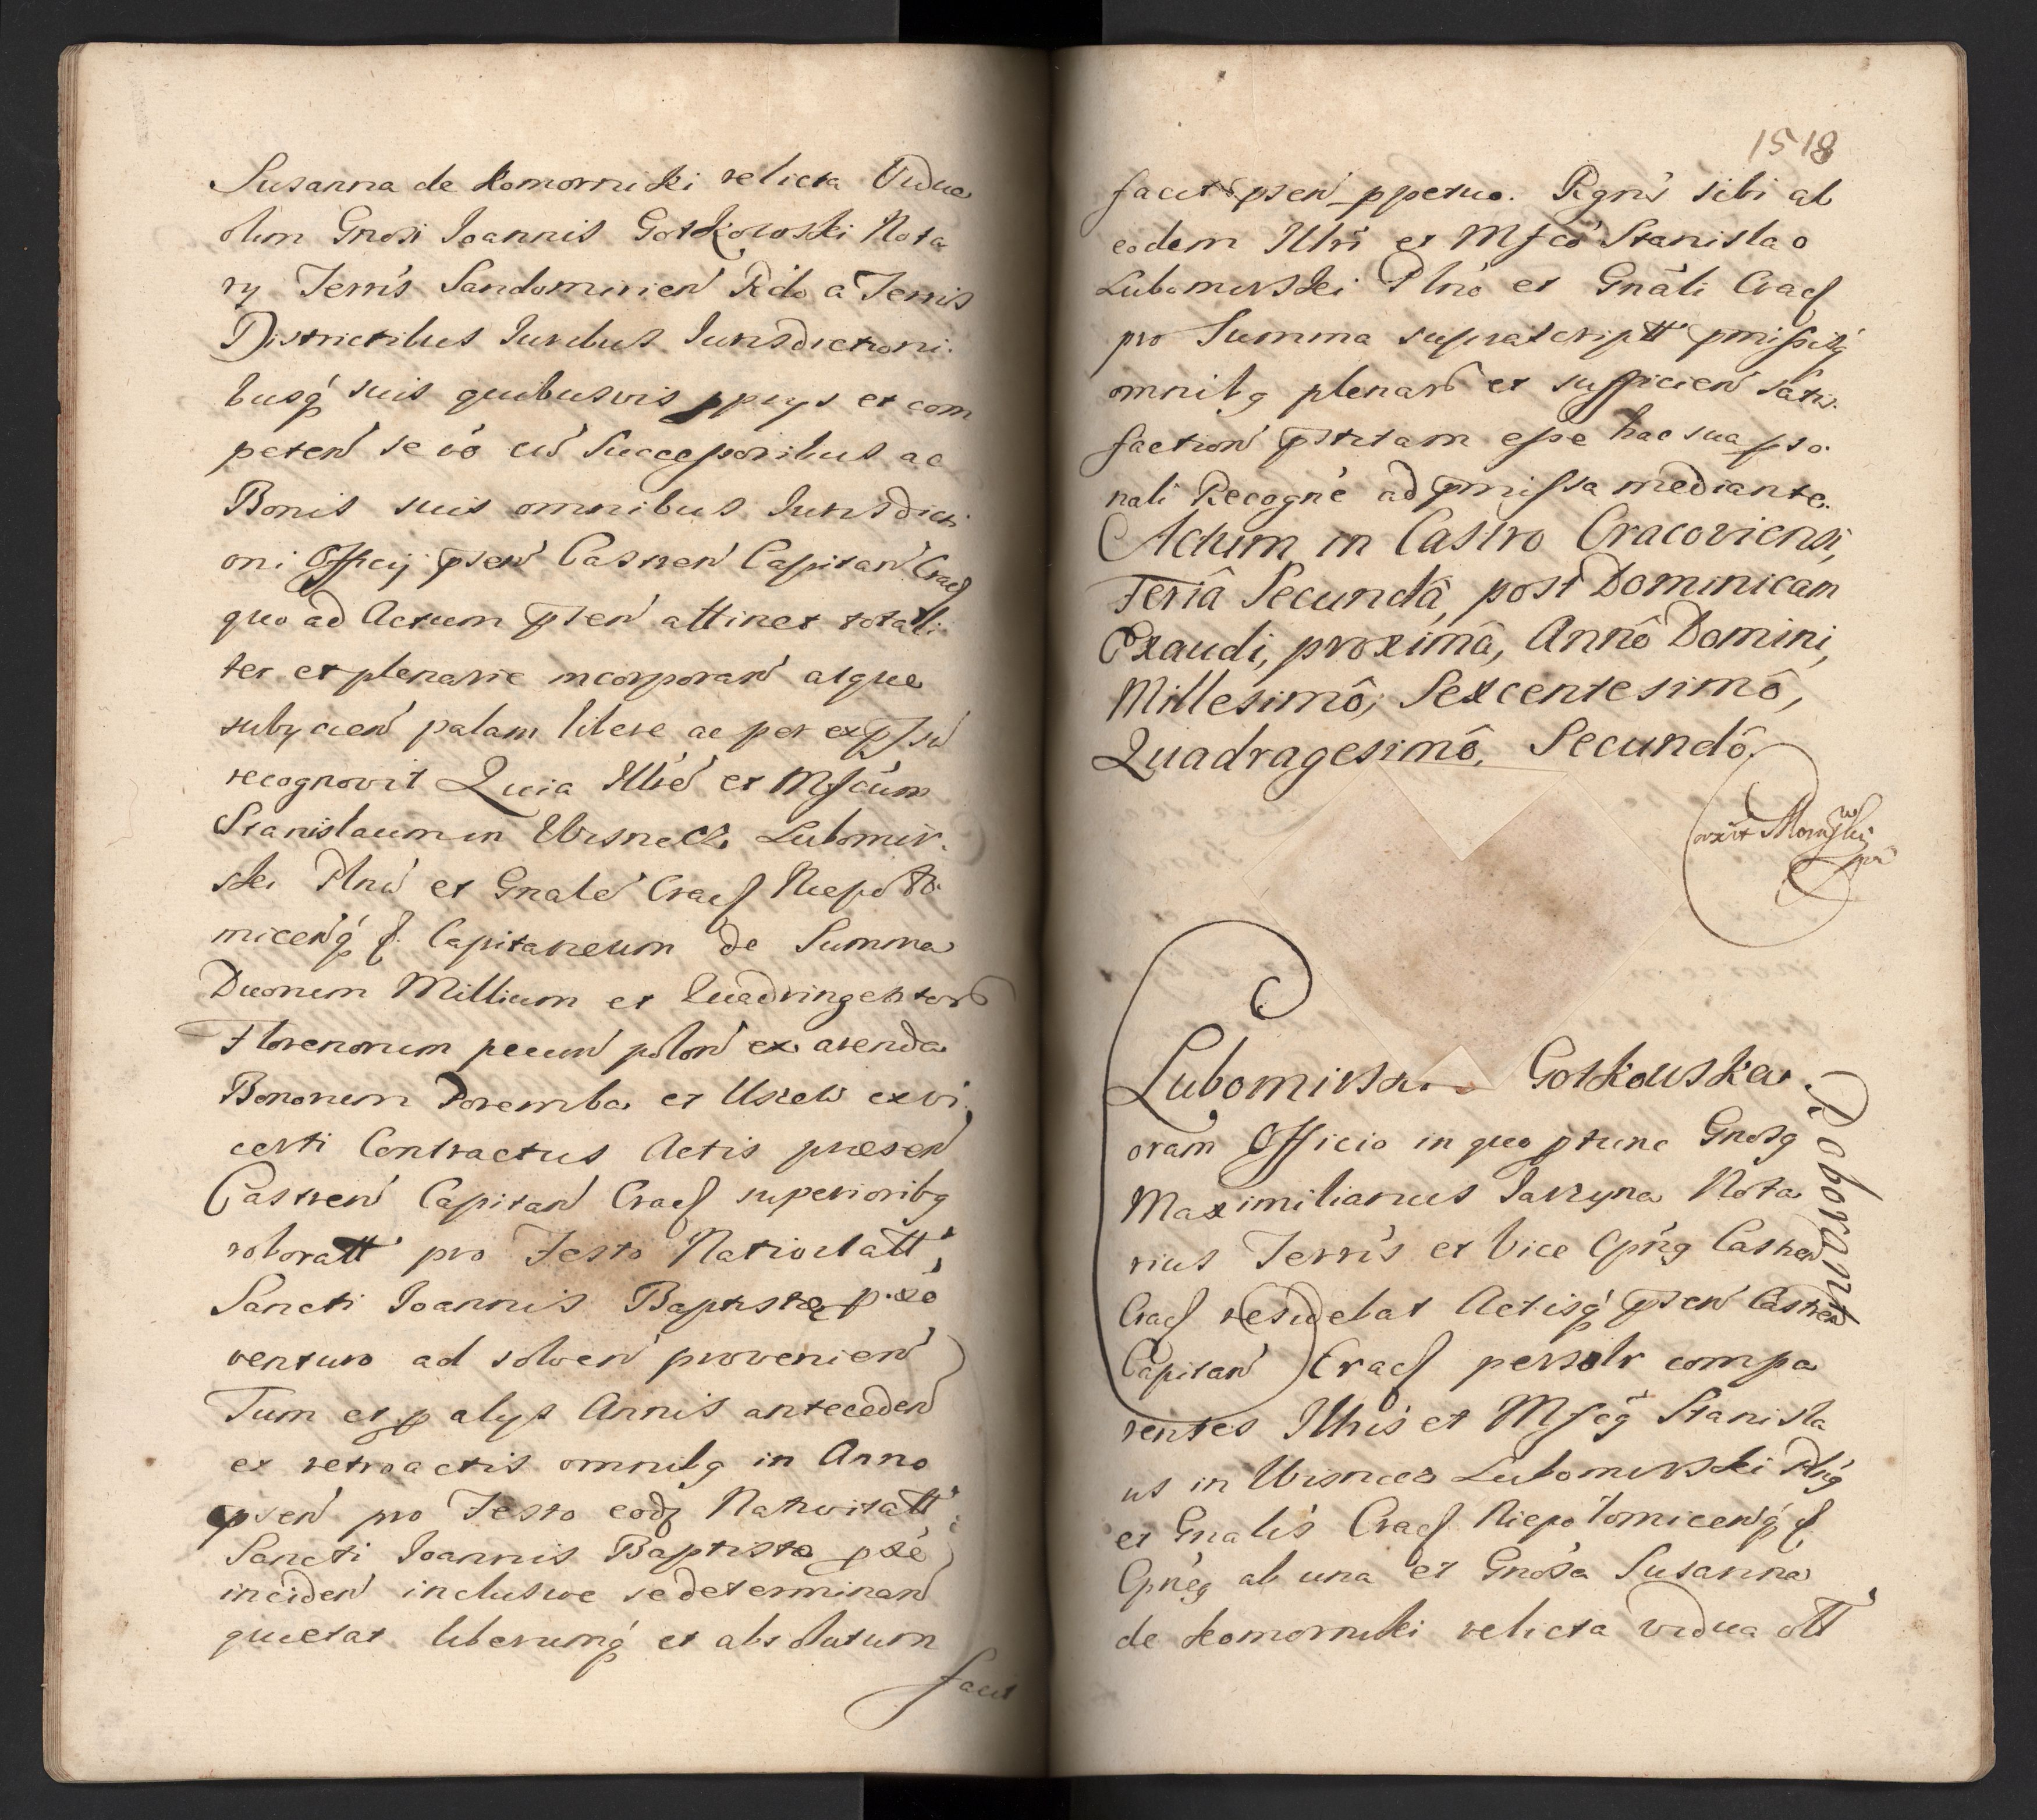 Susanna de Komornicki relicta Vidua
olim Gnosi Joannis Gotkowski Nota
ry Terrís Sandomirień Rdo a Terris
Districtibus Iuribus Iurisdictioni.
busq́ suis quibusvis pprys et com
peteń se vó cú Successoribus ac
Bonis suis omnibus Iurisdicti
oni Officij pseń Castreń Capitań Cracʃ
quo ad Actum pseń attinet totali
ter et plenarie incorporań atque
subycień palam libere ac per expssú
recognovit Quia Illré et Mfcúm
Stanislaum in Wisnicz Lubomir.
ski Plnú et Gnalé Cracʃ Niepoło
miceńq́ ʃ. Capitaneum de Summa
Duorum Millium et Quadringentorú
Florenorum pecuń poloń ex arenda
Bonorum Poremba et Uszew ex vi
certi Contractus Actis præseń
Castreń Capitań Cracʃ superioribg
roboratt pro Festo Nativitatt
Sancti Joannis Baptistæ pxó
venturo ad solveń provenień
Tum et p alys Annis antecedeń
et retroactis omnibg in Anno
pseń pro Festo eodz Nativitatt
Sancti Joannis Baptista pxé
incideń inclusive se determinań
quietat liberumq́ et absolutum
facit
1518
facit pseń ppetuo. Rgnś sibi ab
eodem Illri et Mfcó Stanislao
Lubomirski Plnó et Gnáli Cracʃ
pro Summa suprascriptt pmissisq́
omnibg plenarꝺ et sufficień satis.
factioń pstitam esse hac sua pso.
nali Recogné ad pmissa mediante.
Actum in Castro Cracoviensi,
Feriâ Secundâ, post Dominicam
Exaudi, proximâ, Annô Domini,
Millesimô, Sexcentesimô,
Quadragesimô, Secundô.
Lubomirski Gotkowska
Roborant
oram Officio in quo ptunc Gnosg
Maximilianus Jarzyna Nota
rius Terrís et Vice Cpńg Castreń
Cracʃ residebat Actisq́ pseń Castreń
Capitań Cracʃ persolr compa
rentes Illrís et Mfcg Stanisla
us in Wisnicz Lubomirski Plńg
et Gnalís Cracʃ Niepołomiceńq́ ʃ
Cpńeg ab una et Gnósa Susanna
de Komornicki relicta vidua ott